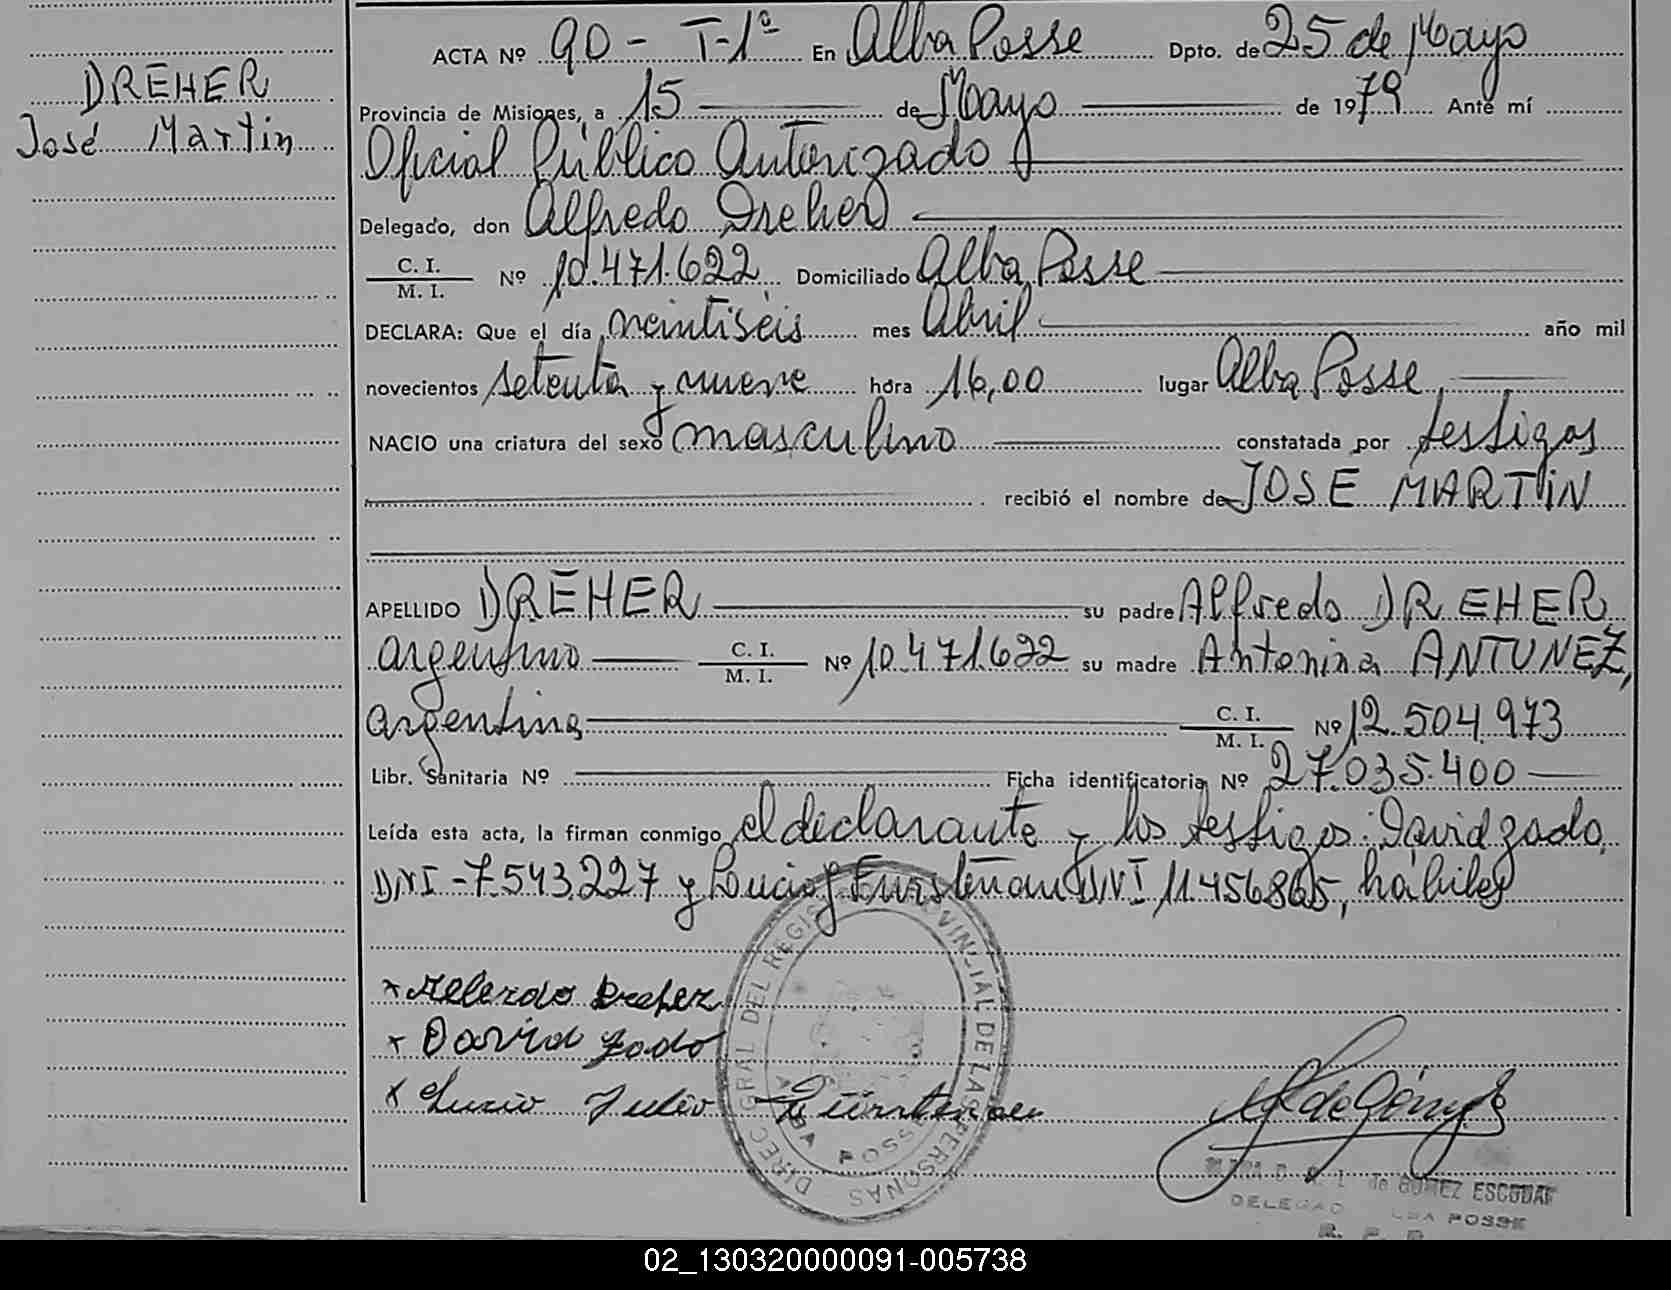 DREHER
José Martin
ACTA Nº 90 - T-1ª En Alba Posse Dpto. de 25 de Mayo
Provincia de Misiones, a 15 de Mayo de 1979 Ante mí
Oficial Público Autorizado
Delegado, don Alfredo Dreher
C. I.
M. I. Nº 10.471.622 Domiciliado Alba Posse
DECLARA: Que el día veintiséis mes Abril año mil
novecientos setenta y nueve hora 16,00 lugar Alba Posse,
NACIO una criatura del sexo masculino constatada por testigos
recibió el nombre de JOSE MARTIN
APELLIDO DREHER su padre Alfredo DREHER,
argentino C. I. M. I. Nº 10.471.622 su madre Antonina ANTUNEZ,
argentina C. I. M. I. Nº 12.504.973
Libr. Sanitaria Nº Ficha identificatoria Nº 27.035.400
Leída esta acta, la firman conmigo el declarante y los testigos: David Zado,
DNI - 7.543.227 y Lucio J Fürstenau DNI 11.456865, hábiles
Dreher
David Zado
Lucio Julio Fürstenau
DIREC. GRAL DEL REGIS PROVINCIAL DE LAS PERSONAS
ALBA POSSE
de GOMEZ ESCOBAR
DELEGAD ALBA POSSE
R. P. P.
02_130320000091-005738